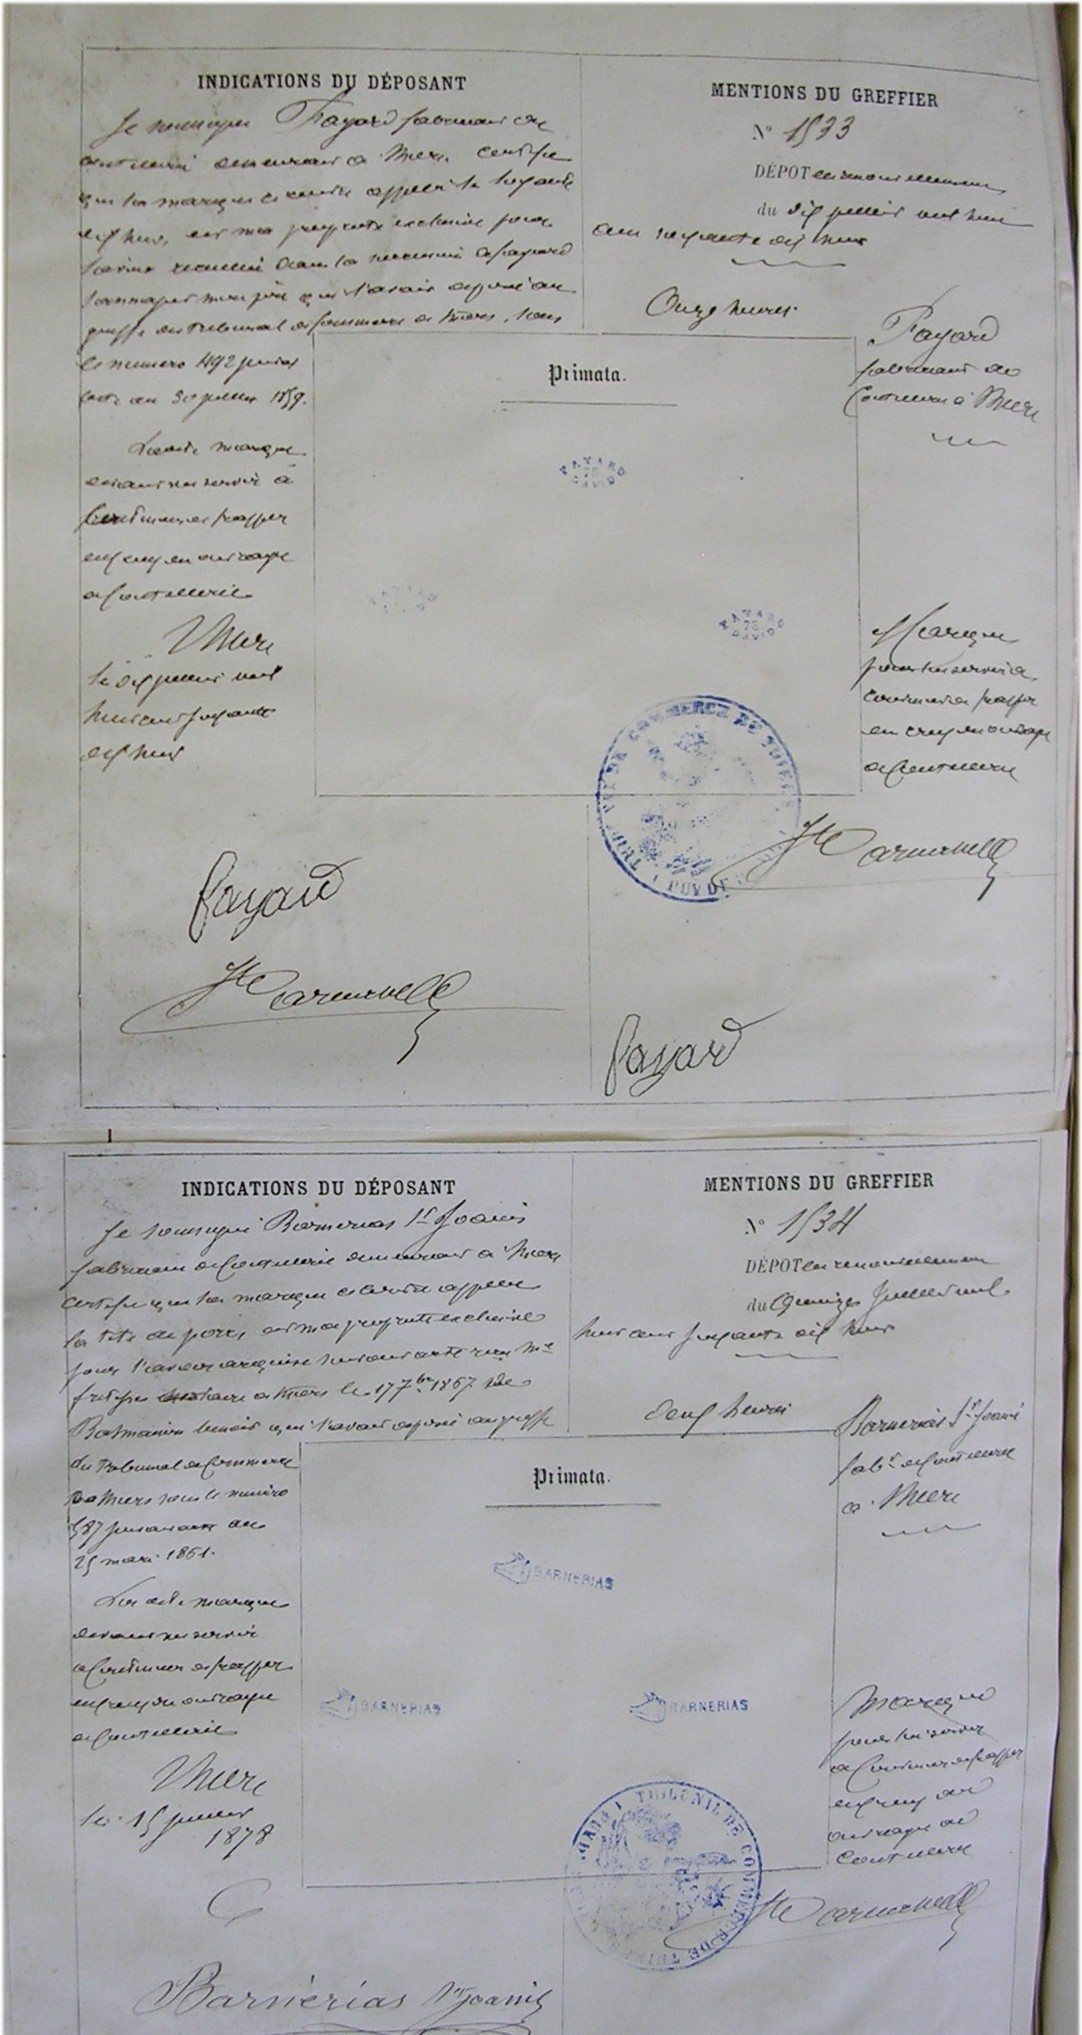 INDICATIONS DU DÉPOSANT
Je soussigné Fayard fabricant de
coutellerie demeurant à Thiers certifie
que la marque ci contre appelée le soixante
dix huit, est ma propriété exclusive pour
l'avoir recueillie dans la succession de fayard
mon père qui l'avait déposé au
greffe du Tribunal de Commerce de Thiers, sous
le numéro 492
date du 30 juillet 1859.
La dite marque
devant me servir à
continuer de frapper
en creux un ouvrage
de Coutellerie
Thiers
le dix juillet mil
huit cent soixante
dix huit
fayard
MENTIONS DU GREFFIER
N° 1533
DÉPOT en renouvellement
du dix juillet mil huit
cent soixante dix huit
Onze heures
Primata.
Fayard
fabricant de
Coutellerie à Thiers
FAYARD
78
DAVID
FAYARD
78
DAVID
Marque
pour lui servir à
continuer de frapper
en creux un ouvrage
de Coutellerie
fayard
INDICATIONS DU DÉPOSANT
Je soussigné Barnerias St Joanis
fabricant de Coutellerie demeurant à Thiers
certifie que la marque ci contre appelée
la tête de porc, est ma propriété exclusive
pour l'avoir acquise suivant acte reçu Me
notaire à Thiers le 17 7bre 1867 de
qui l'avait déposé au greffe
du Tribunal de Commerce
de Thiers sous le numéro
587 suivant acte du
25 mars 1861.
La dite marque
devant me servir
à Continuer de frapper
en creux un ouvrage
de Coutellerie
Thiers
le 15 juillet
1878
Barnérias St Joanis
MENTIONS DU GREFFIER
N° 1534
DÉPOT en renouvellement
du Quinze Juillet mil
huit cent soixante dix huit
deux heures
Primata.
Barnerias St Joanis
fabt de Coutellerie
à Thiers
BARNERIAS
BARNERIAS
BARNERIAS
Marque
pour lui servir
à Continuer de frapper
en creux un
ouvrage de
Coutellerie
TRIBUNAL DE COMMERCE DE THIERS